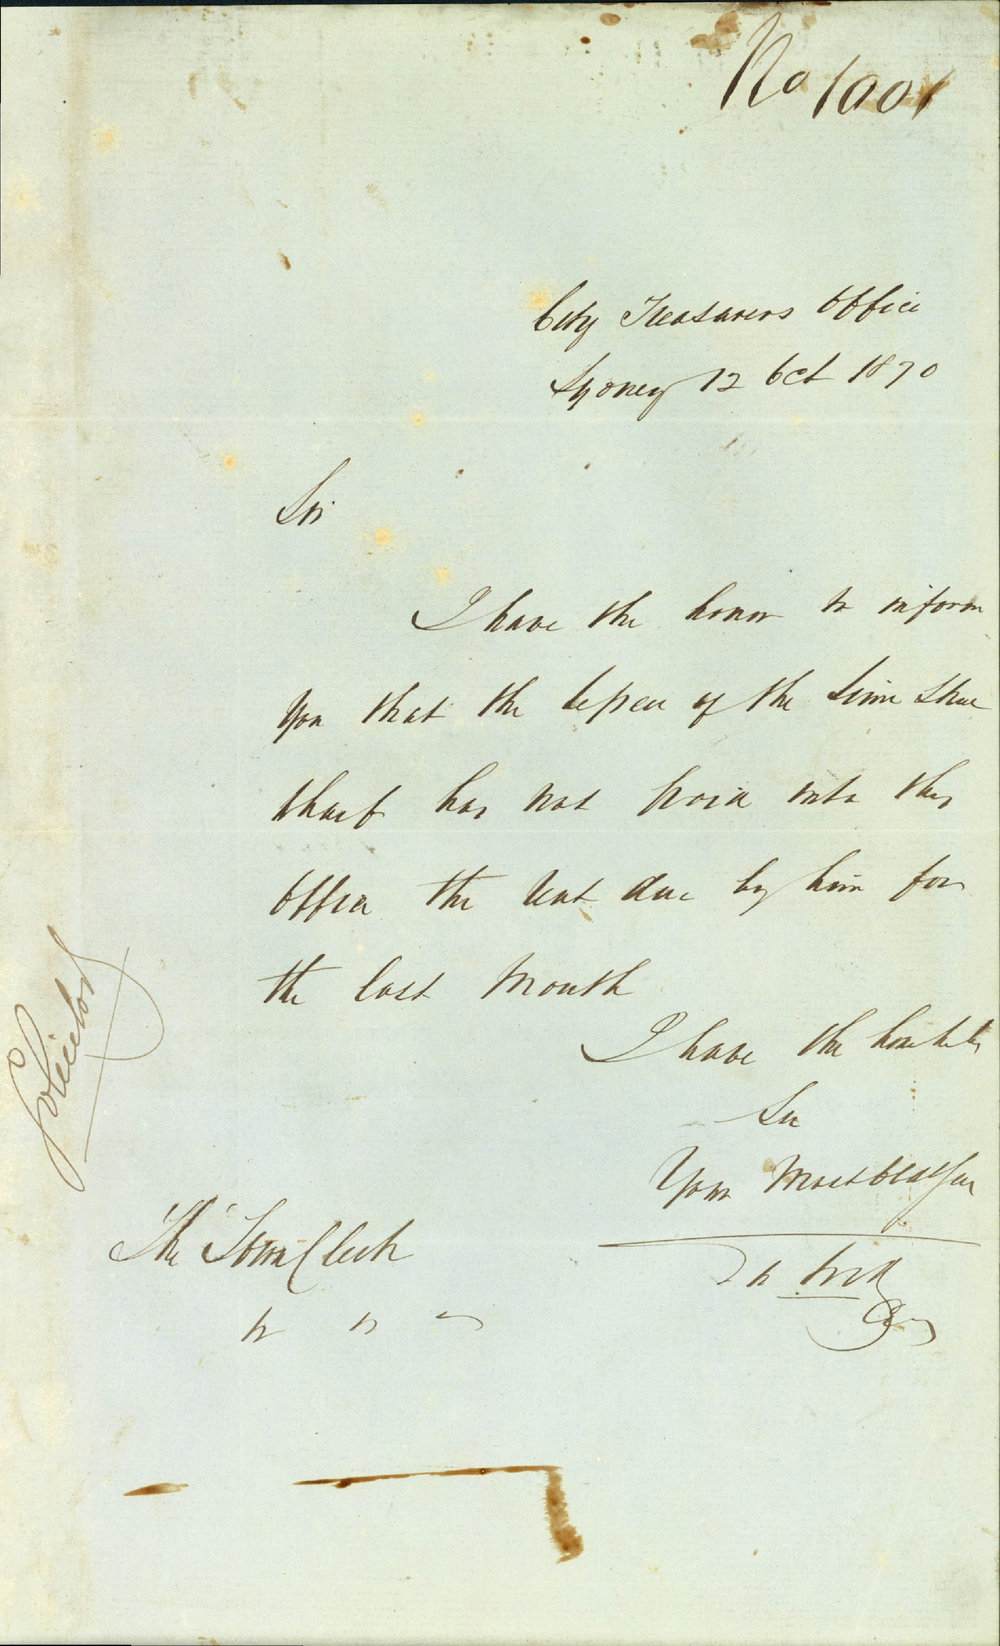 No 1001
City Treasurers Office
Sydney 12 Oct 1870
Sir
I have the honor to inform
You that the lessee of the Lime Street
Wharf has not paid into this
Office the Rent due by him for
the last Month
I have the honor to be
Sir
Your Most Obd Ser
The Town Clerk
Solicitor